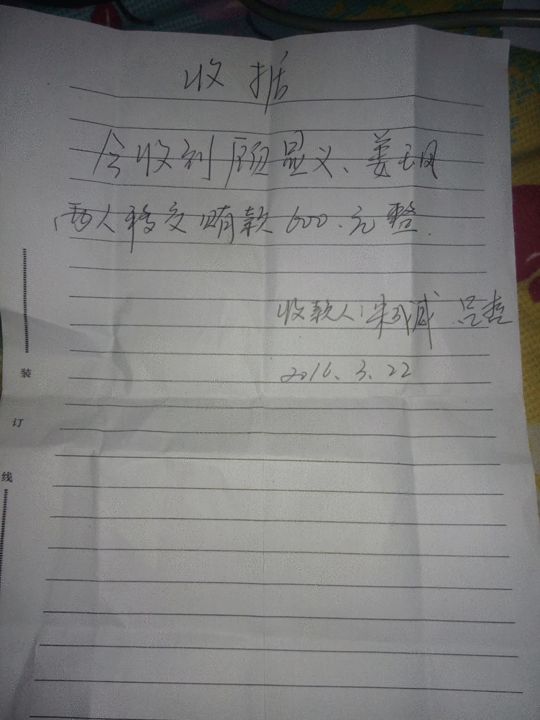 收据
今收到顾显义、姜玉凤
两人转交赌款600.元整.
收款人:朱成威 吕哲
2016.3.22
装
订
线